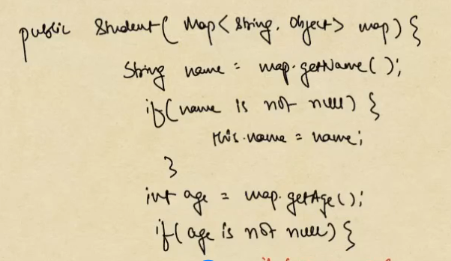 public Student( Map<String, Object> map) {
String name = map.getName( );
if(name is not null) {
this.name = name;
}
int age = map.getAge( );
if(age is not null) {